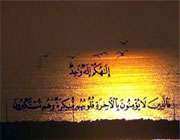 إِلَٰهُكُمْ إِلَٰهٌ وَٰحِدٌ
فَٱلَّذِينَ لَا يُؤْمِنُونَ بِٱلْءَاخِرَةِ قُلُوبُهُم مُّنكِرَةٌ وَهُم مُّسْتَكْبِرُونَ